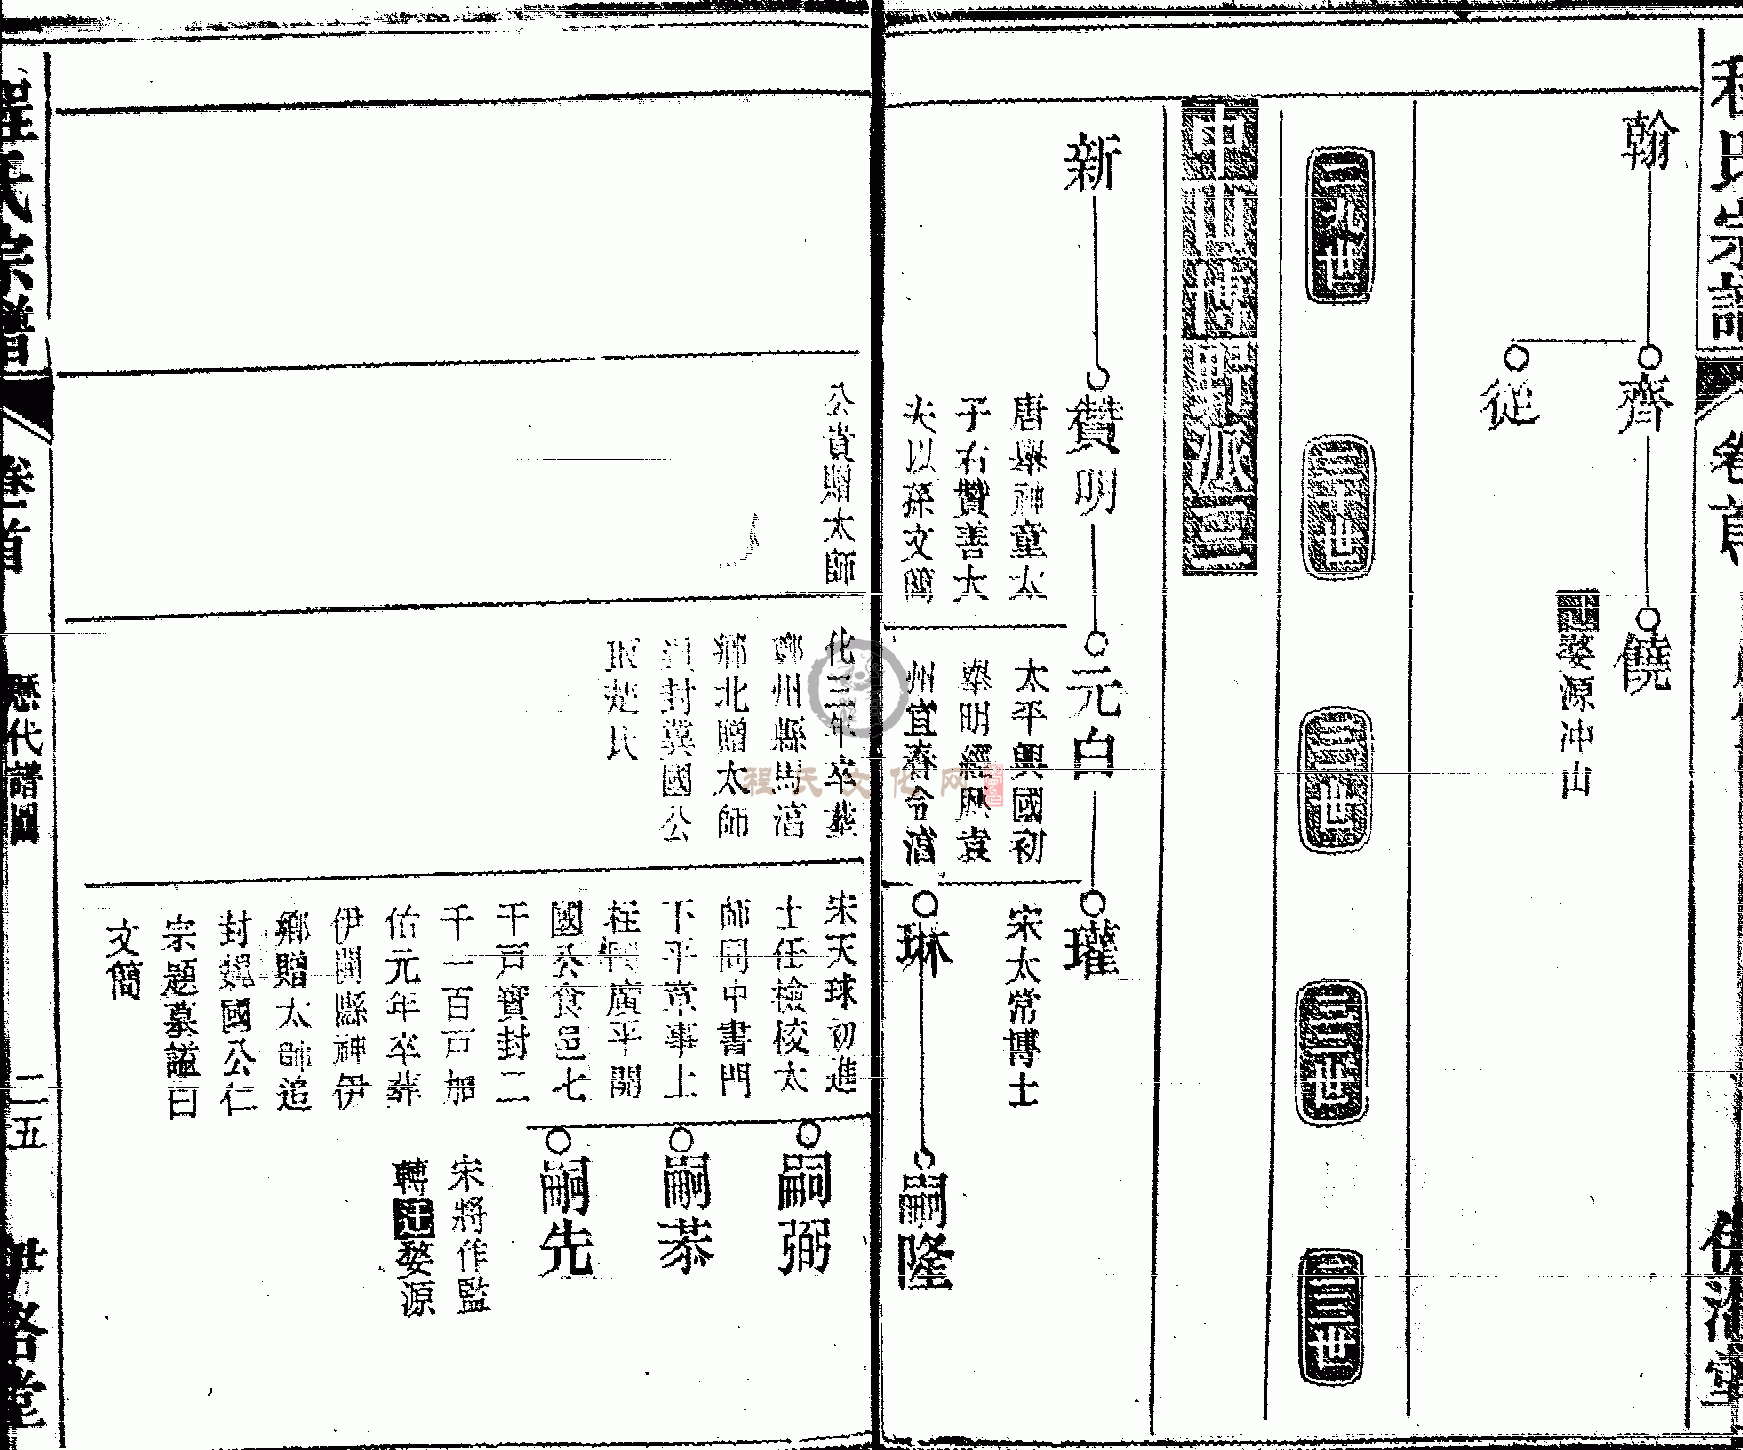 程氏宗譜
卷首
翰
齊
從
饒
婺源冲山
二九世
三十世
三一世
三二世
三三世
中山博野派三
新
贊明
唐舉神童太
子右贊善大
夫以孫文簡
公貴贈太師
元白
太平興國初
舉明經歷袁
州宜春令淳
化三年卒葬
鄭州縣馬
鄉北贈太師
封冀國公
取楚氏
瓘
宋太常博士
琳
宋天球初進
士任檢校太
師同中書門
下平章事上
柱國廣平開
國公食邑七
千戶實封二
千一百戶加
佑元年卒葬
伊闕縣神伊
鄉贈太師追
封魏國公仁
宗題墓謚曰
文簡
嗣隆
嗣弼
嗣恭
嗣先
宋將作監
轉遷婺源
程氏宗譜
卷首
歷代譜圖
二五
伊洛堂
程氏文化网